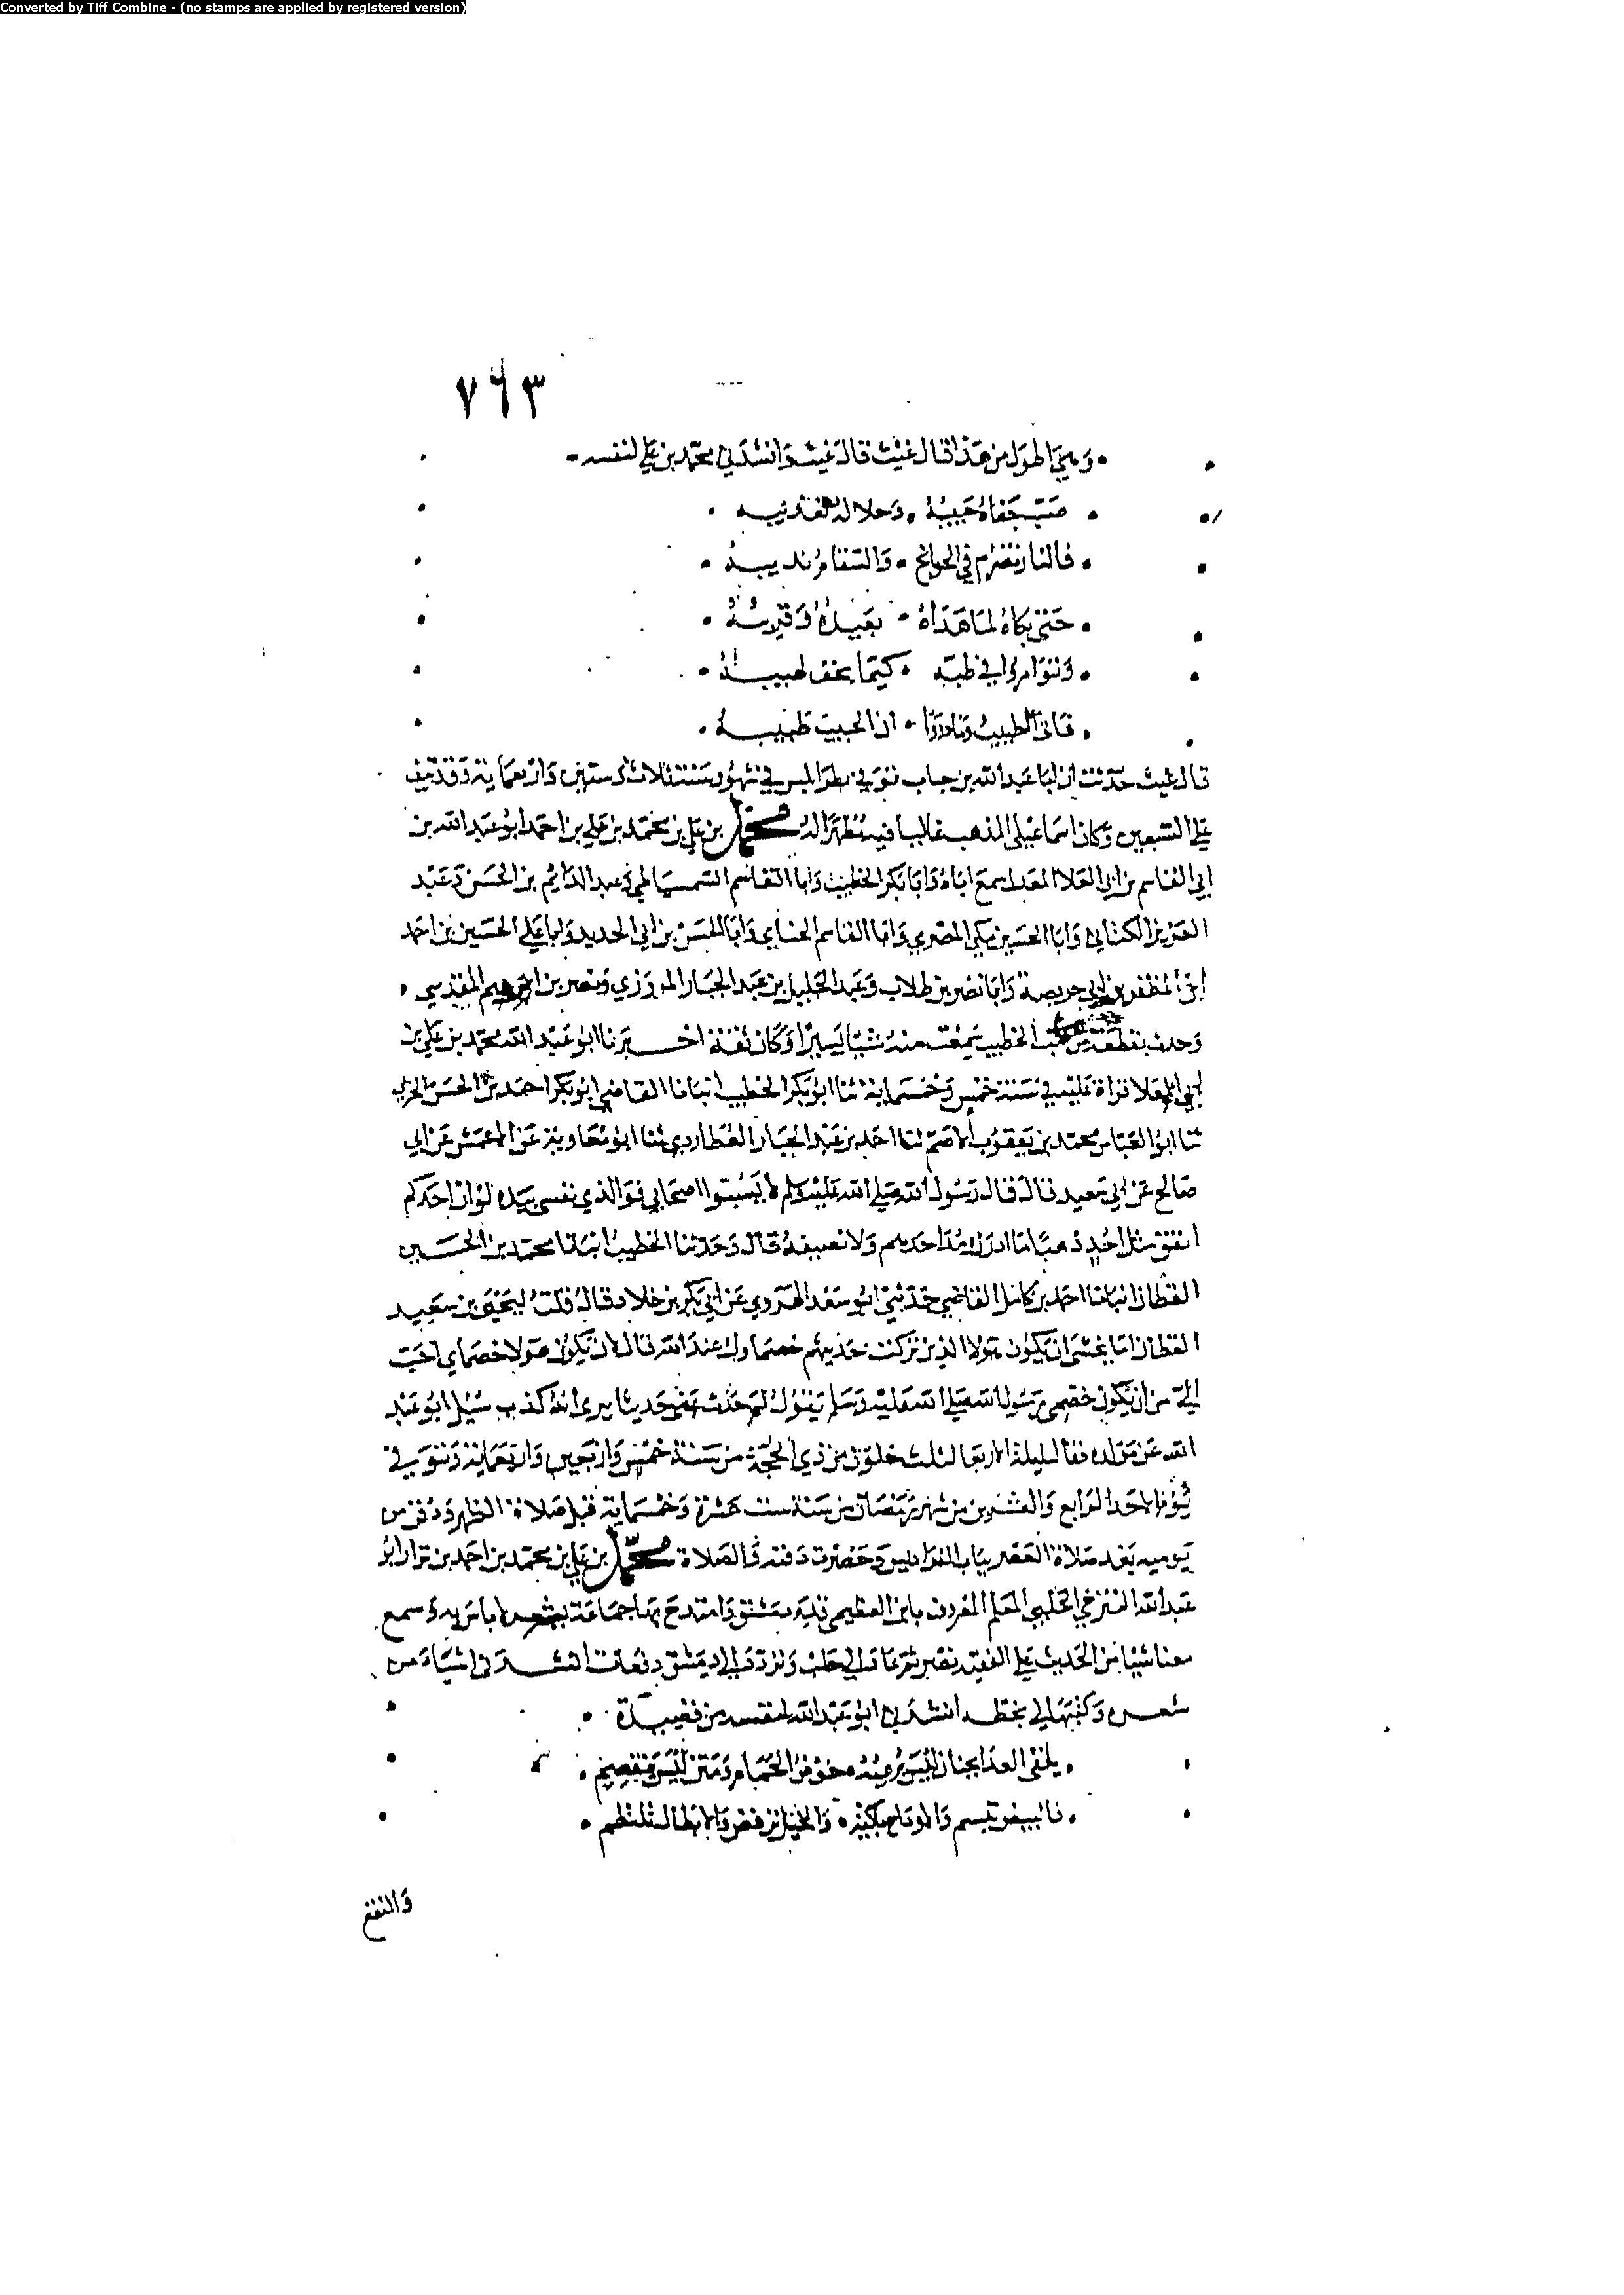 Converted by Tiff Combine - (no stamps are applied by registered version)
٧٦٣
وهي اطول من هذا قال غيث قال غيث وانشدني محمد بن علي لنفسه
صب جفاه حبيبه وحلا له تعذيبه
فالنار تضرم في الجوانح والسقام يذيبه
حتى بكاه لما هداه بعيده وقريبه
وتوامروا في طبه كيما يخف لهيبه
فاتى الطبيب وما دروا ان الحبيب طبيبه
قال غيث حدثت ان ابا عبد الله بن حباب توفي بطرابلس في شهور سنة ثلاث وستين واربعماية وقد نيف
على السبعين وكان اسماعيلي المذهب غاليا فيه متظهرا له محمد بن علي بن محمد بن علي بن احمد ابو عبد الله بن
ابي القاسم بن ابي العلا المعدل سمع اباه وابا بكر الخطيب وابا القاسم السميساطي وعبد الدايم بن الحسن وعبد
العزيز الكناني وابا الحسين بن مكي المصري وابا القاسم الحنائي وابا الحسن بن ابي الحديد وابا علي الحسين بن احمد
ابن المظفر بن ابي حريصة وابا نصر بن طلاب وعبد الجليل بن عبد الجبار المروزي ونصر بن ابرهيم المقدسي
وحدث بقطعة من كتب الخطيب سمعت منه شيئا يسيرا وكان ثقة اخبرنا ابو عبد الله محمد بن علي بن
ابي العلا قراة عليه في سنة خمس وخمسماية ثنا ابو بكر الخطيب انبانا القاضي ابو بكر احمد بن الحسن الحرشي
ثنا ابو العباس محمد بن يعقوب الاصم ثنا احمد بن عبد الجبار العطاردي ثنا ابو معاوية عن الاعمش عن ابي
صالح عن ابي سعيد قال قال رسول الله صلى الله عليه وسلم لا تسبوا اصحابي فوالذي نفسي بيده لو ان احدكم
انفق مثل احد ذهبا ما ادرك مد احدهم ولا نصيفه قال وحدثنا الخطيب انبانا محمد بن الحسين
القطان انبانا احمد بن كامل القاضي حدثني ابو سعد الهروي عن ابي بكر بن خلاد قال قلت ليحيى بن سعيد
القطان اما تخشى ان يكون هولا الذين تركت حديثهم خصماوك عند الله قال لان يكون هولا خصماي احب
الي من ان يكون خصمي رسول الله صلى الله عليه وسلم يقول لم حدثت عني حديثا يرى انه كذب سئل ابو عبد
الله عن مولده فقال ليلة الاربعا لثلث خلون من ذي الحجة من سنة خمس واربعين واربعماية وتوفي في
يوم الاحد الرابع والعشرين من شهر رمضان من سنة ست عشرة وخمسماية قبل صلاة الظهر ودفن من
يوميه بعد صلاة العصر بباب الفراديس وحضرت دفنه والصلاة محمد بن علي بن محمد بن احمد بن نزار ابو
عبد الله التنوخي الحلبي المعلم المعروف بابن العظيمي قدم دمشق وامتدح بها جماعة بشعر لا باس به وسمع
معنا شيئا من الحديث على الفقيه نصر ثم عاد الى حلب وتردد الى دمشق دفعات انشدني اشياء من
شعره وكتبها لي بخطه انشدني ابو عبد الله لنفسه من قصيدة
يلقى العدا بجنان ليس يرعبه خوف الحمام ومتن ليس ينفصم
فالبيض تبسم والاوداج باكية والخيل ترقص والابطال تلتطم
والنقع